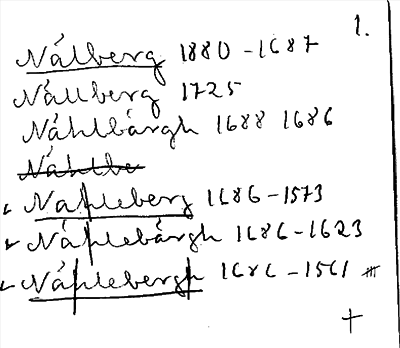 1.
Nálberg 1880-1687
Nállberg 1725
Náhlbárgh 1688 1686
Náhlbe
Nahleberg 1686-1573
Náhlebárgh 1686-1623
Náhlebergh 1686-1561